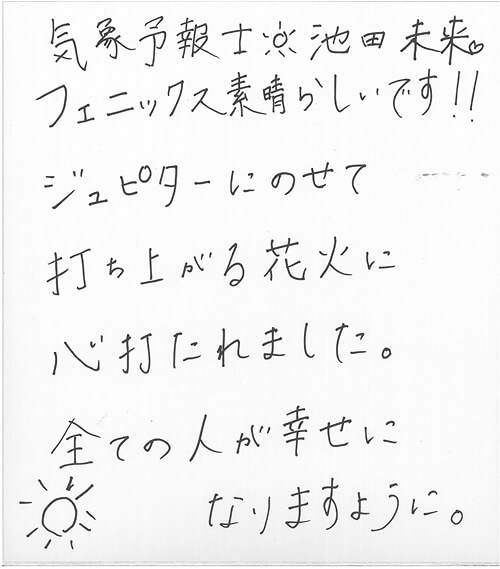 気象予報士☼池田未来♡
フェニックス素晴らしいです!!
ジュピターにのせて
打ち上がる花火に
心打たれました。
全ての人が幸せに
なりますように。